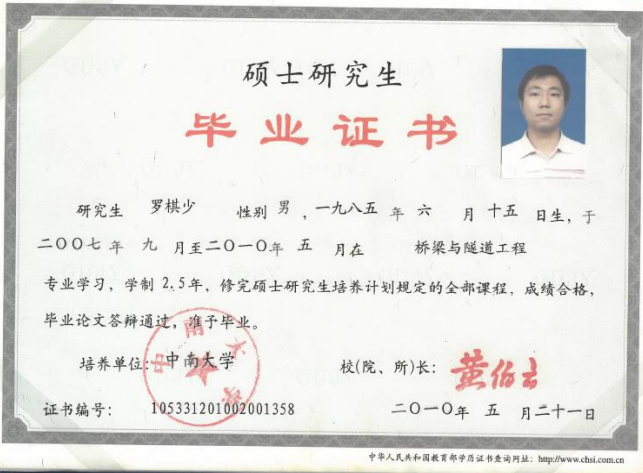 硕士研究生
毕业证书
研究生 罗棋少 性别 男 ，一九八五 年 六 月 十五 日生，于
二〇〇七 年 九 月至二〇一〇年 五 月在 桥梁与隧道工程
专业学习，学制 2.5年、修完硕士研究生培养计划规定的全部课程，成绩合格，
毕业论文答辩通过，准予毕业。
培养单位：中南大学 校(院、所)长：黄伯云
证书编号： 105331201002001358 二〇一〇年 五 月二十一日
中华人民共和国教育部学历证书查询网址：http://www.chsi.com.cn